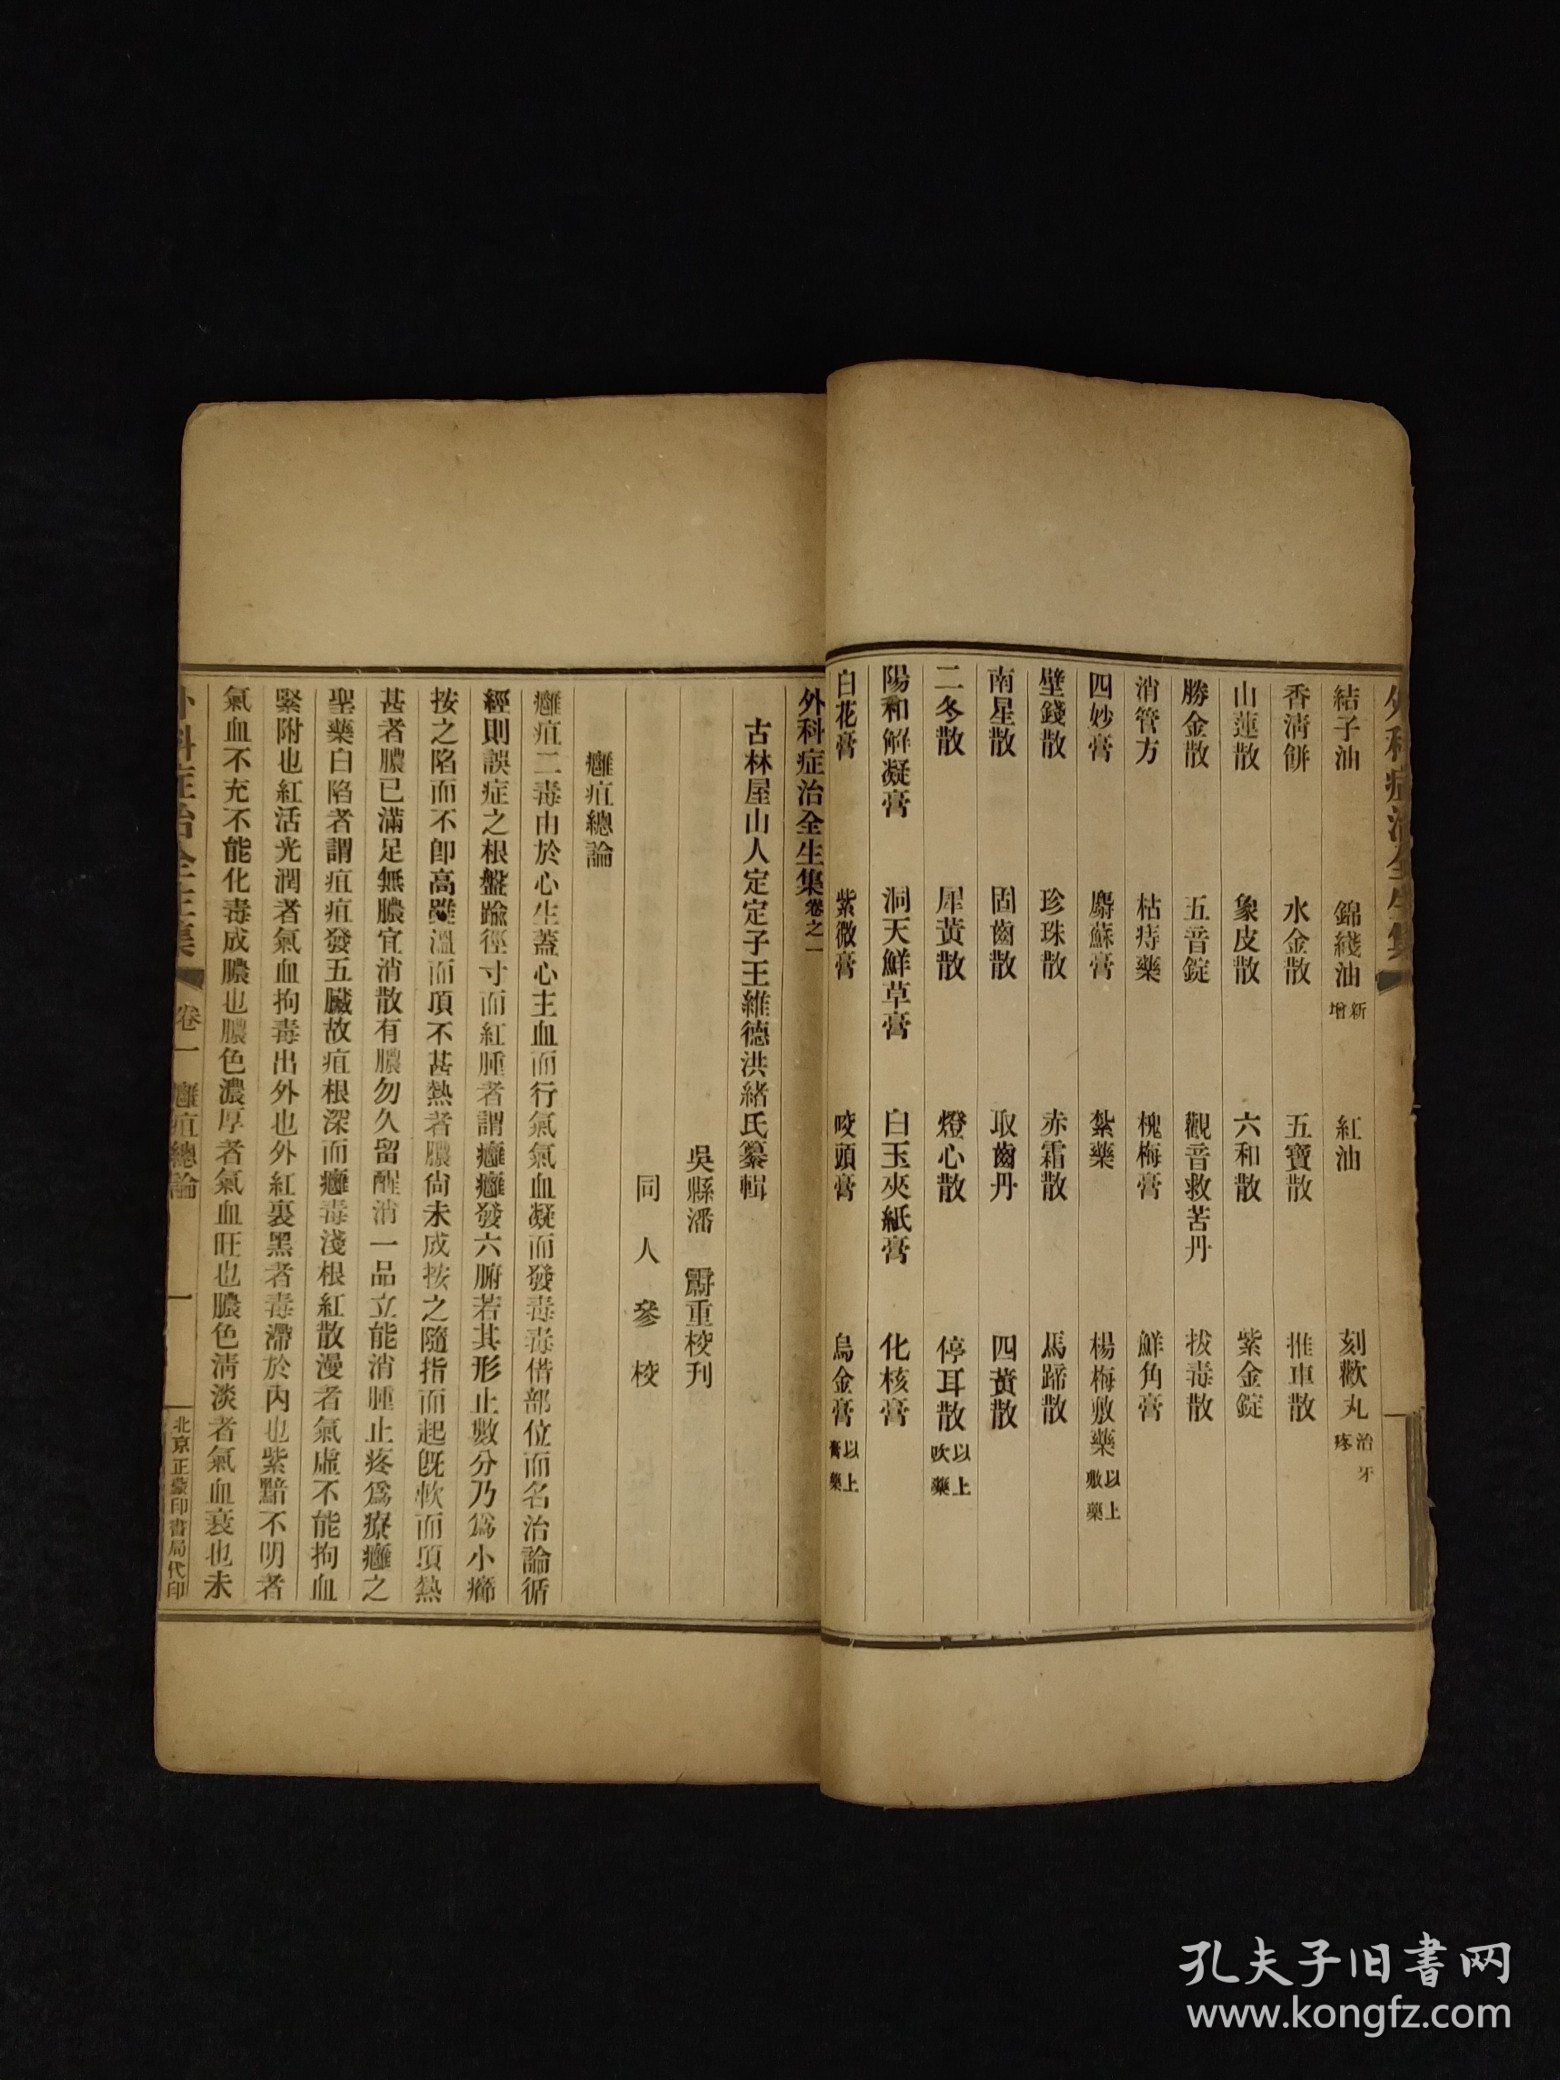 外科症治全生集
結子油 錦綫油 新增 紅油 刻歡丸 治牙疼
香清餅 水金散 五寶散 推車散
山蓮散 象皮散 六和散 紫金錠
勝金散 五音錠 觀音救苦丹 拔毒散
消管方 枯痔藥 槐梅膏 鮮角膏
四妙膏 麝蘇膏 紮藥 楊梅敷藥 以上敷藥
壁錢散 珍珠散 赤霜散 馬蹄散
南星散 固齒散 取齒丹 四黃散
二冬散 犀黃散 燈心散 停耳散 以上吹藥
陽和解凝膏 洞天鮮草膏 白玉夾紙膏 化核膏
白花膏 紫微膏 咬頭膏 烏金膏 以上膏藥
外科症治全生集卷之一
古林屋山人定定子王維德洪緒氏纂輯
吳縣潘 霨重校刊
同人參校
癰疽總論
癰疽二毒由於心生蓋心主血而行氣氣血凝而發毒毒借部位而名治論循
經則誤症之根盤踰徑寸而紅腫者謂癰癰發六腑若其形止數分乃爲小癤
按之陷而不卽高雖溫而頂不甚熱者膿尙未成按之隨指而起旣軟而頂熱
甚者膿已滿足無膿宜消散有膿勿久留醒消一品立能消腫止疼爲療癰之
聖藥白陷者謂疽疽發五臟故疽根深而癰毒淺根紅散漫者氣虛不能拘血
緊附也紅活光潤者氣血拘毒出外也外紅裏黑者毒滯於內也紫黯不明者
氣血不充不能化毒成膿也膿色濃厚者氣血旺也膿色清淡者氣血衰也未
外科症治全生集 卷一 癰疽總論 一 北京正蒙印書局代印
孔夫子旧书网
www.kongfz.com